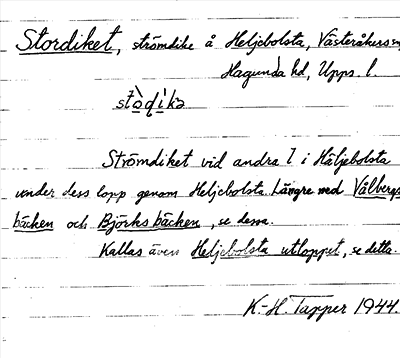 Stordiket, strömdike å Heljebolsta, Västeråkers sn,
Hagunda hd, Upps. l.
stòḍíkə
Strömdiket vid andra l i Häljebolsta
under dess lopp genom Heljebolsta. Längre ned Vålbergs
bäcken och Björks bäcken, se dessa.
Kallas även Heljebolsta utloppet, se detta.
K.-H. Tapper 1944.